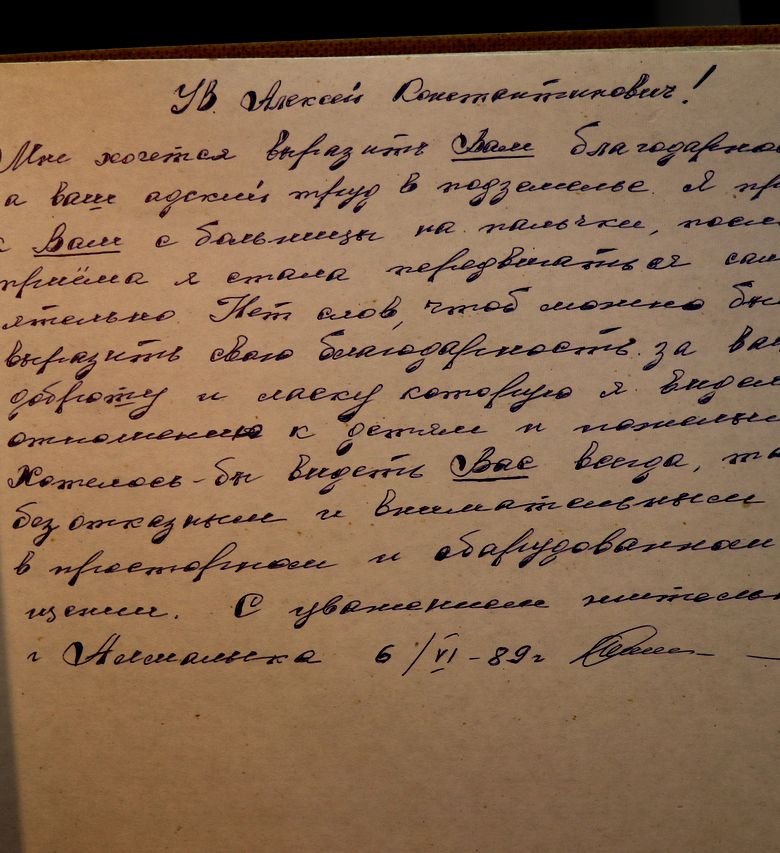 Ув. Алексей Константинович!
Мне хочется выразить Вам благодарнос
а ваш адский труд в подземелье. Я пр
к Вам с больницы на палычки, посл
приёма я стала передвигаться сам
ятельно Нет слов, чтоб можно бы
выразить свою благодарность за ва
доброту и ласку которую я видел
отношению к детям и пожелым
Хотелось-бы видеть Вас всегда, та
безотказным и внимательным
в просторном и оборудованном
щении. С уважением жительн
г Алмалыка 6/VI-89г